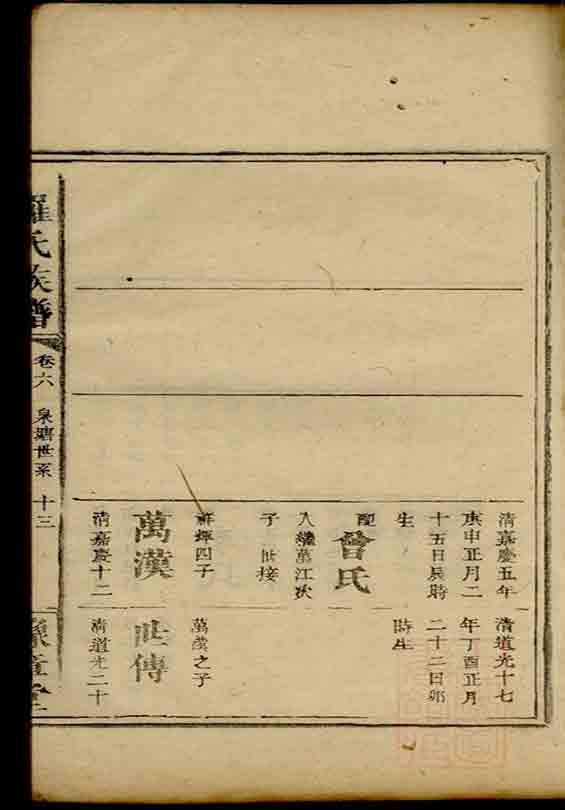 清嘉慶五年
庚申正月二
十五日辰時
生
配曾氏
入繼萬江次
子世接
祥輝四子
萬漢
清嘉慶十二
清道光十七
年丁酉正月
二十二日卯
時生
萬漢之子
世傳
清道光二十
羅氏族譜
卷六
泉塘世系
十三